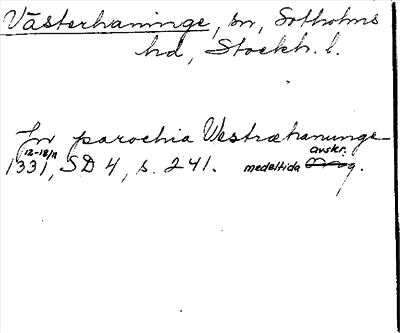 Västerhaninge, sn, Sotholms
hd, Stockh. l.
In parochia Vestræhanunge
12-18/11 avskr.
1331, SD 4, s. 241. medeltida